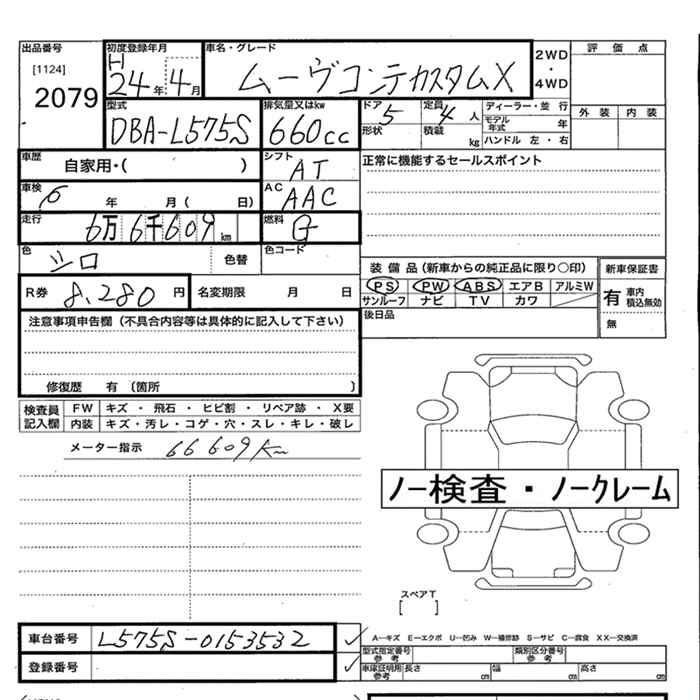 出品番号 初度登録年月 車名・グレード 2WD ・ 4WD 評価点
[1124] H 24年 4月 ムーヴコンテカスタムX
2079 外装 内装
型式 排気量又はkw ドア 5 定員 4人 ディーラー・並 行
DBA-L575S 660cc 形状 積載 kg モデル年式 年
ハンドル 左・右
車歴 自家用・( ) シフト AT 正常に機能するセールスポイント
車検 6 年 月( 日) AC AAC
走行 6万6千609km 燃料 G
色 シロ 色替 色コード
装備品(新車からの純正品に限り○印) 新車保証書
R券 8,280円 名変期限 月 日 PS PW ABS エアB アルミW 有 車内積込無効
サンルーフ ナビ TV カワ
後日品 無
注意事項申告欄(不具合内容等は具体的に記入して下さい)
修復歴 有(箇所 )
検査員記入欄 FW キズ・飛石・ヒビ割・リペア跡・X要
内装 キズ・汚レ・コゲ・穴・スレ・キレ・破レ
メーター指示 66609Km
ノー検査・ノークレーム
スペアT
[ ]
車台番号 L575S-0153532 A-キズ E-エクボ U-凹み W-補修跡 S-サビ C-腐食 XX-交換済
型式指定番号 参考 類別区分番号 参考
登録番号 車庫証明用 参考 長さ cm 幅 cm 高さ cm